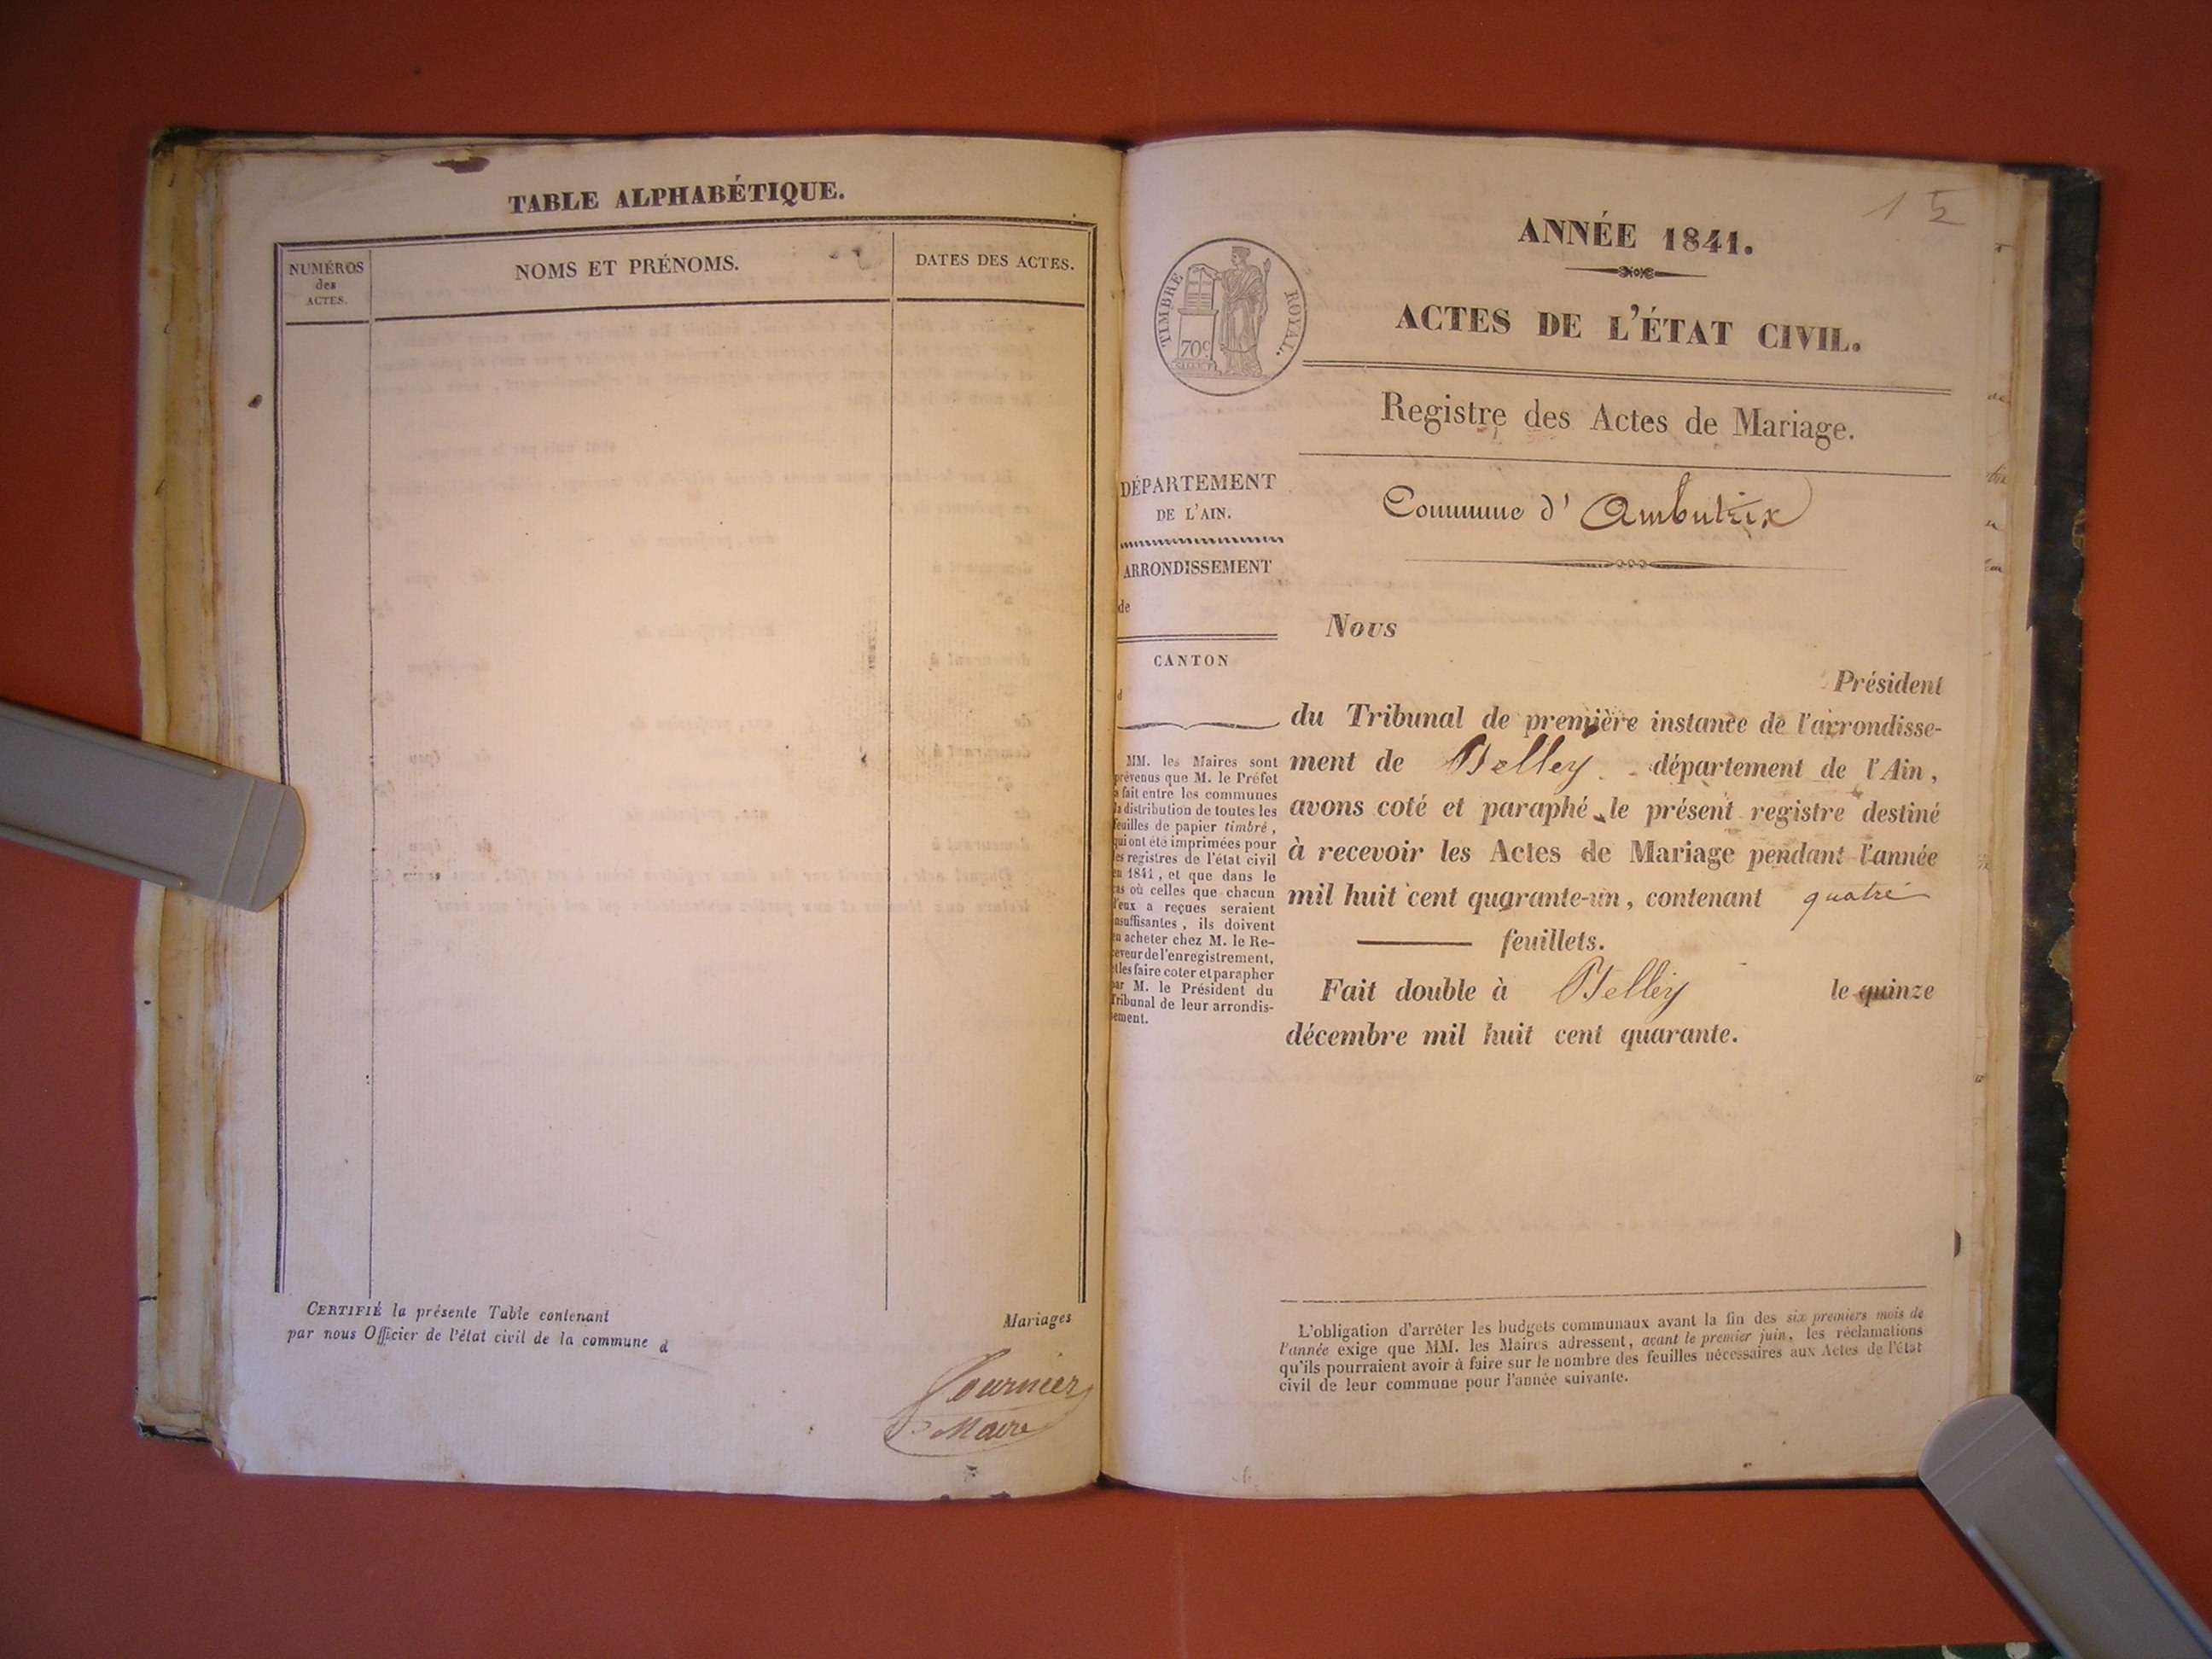 TABLE ALPHABÉTIQUE.
NUMÉROS
des
ACTES.
NOMS ET PRÉNOMS.
DATES DES ACTES.
CERTIFIÉ la présente Table contenant
Mariages
par nous Officier de l'état civil de la commune d
Fournier
Maire
15
ANNÉE 1841.
TIMBRE ROYAL.
70c
ACTES DE L'ÉTAT CIVIL.
Registre des Actes de Mariage.
DÉPARTEMENT
DE L'AIN.
ARRONDISSEMENT
de
CANTON
d
MM. les Maires sont
prévenus que M. le Préfet
a fait entre les communes
la distribution de toutes les
feuilles de papier timbré,
qui ont été imprimées pour
les registres de l'état civil
en 1841, et que dans le
cas où celles que chacun
d'eux a reçues seraient
insuffisantes, ils doivent
en acheter chez M. le Re-
ceveur de l'enregistrement,
et les faire coter et parapher
par M. le Président du
Tribunal de leur arrondis-
sement.
Commune d' Ambutrix
Nous
Président
du Tribunal de première instance de l'arrondisse-
ment de Belley département de l'Ain,
avons coté et paraphé le présent registre destiné
à recevoir les Actes de Mariage pendant l'année
mil huit cent quarante-un, contenant quatre
feuillets.
Fait double à Belley le quinze
décembre mil huit cent quarante.
L'obligation d'arrêter les budgets communaux avant la fin des six premiers mois de
l'année exige que MM. les Maires adressent, avant le premier juin, les réclamations
qu'ils pourraient avoir à faire sur le nombre des feuilles nécessaires aux Actes de l'état
civil de leur commune pour l'année suivante.